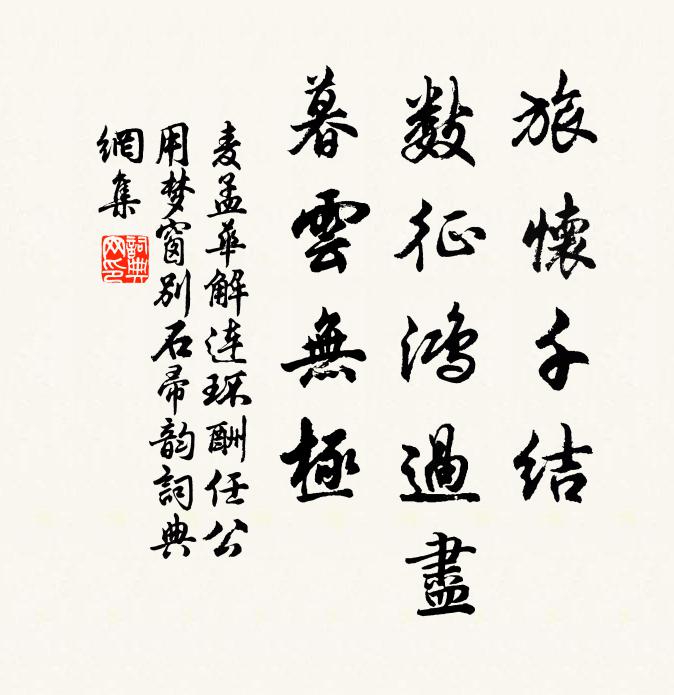 旅懷千结
數征鴻過盡
暮雲無極
麦孟華解连环酬任公
用梦窗别石帚韵詞典
網集
詞典網印